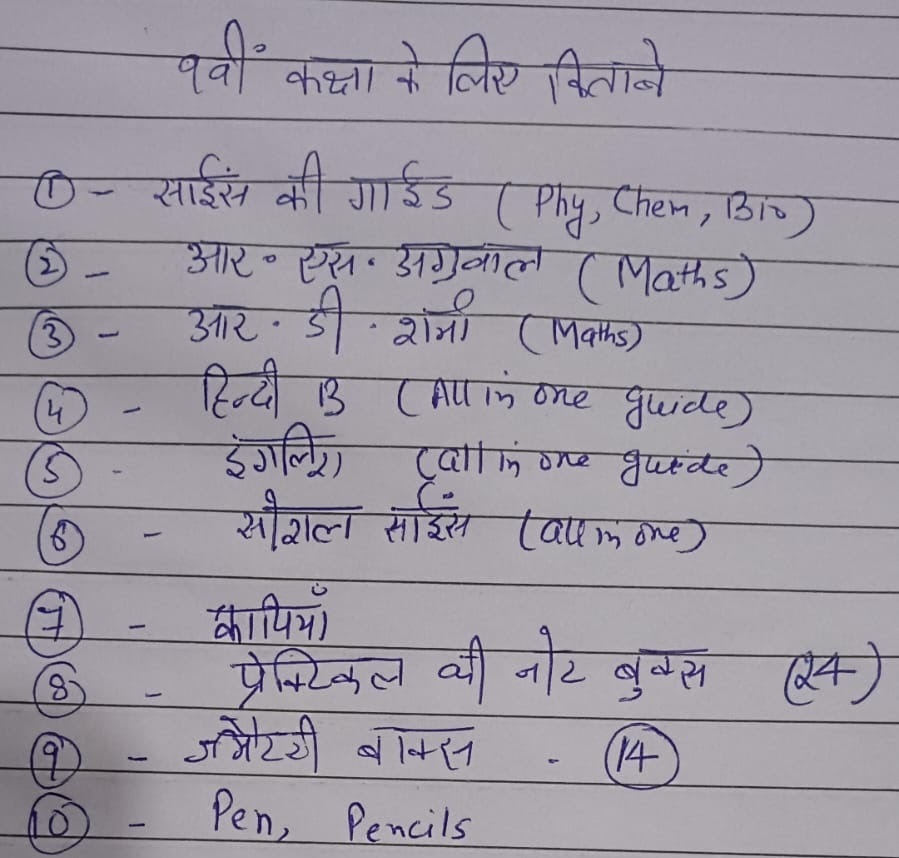 9वीं कक्षा के लिए किताबे
① - साईंस की गाईड (Phy, Chem, Bio)
② - आर॰ एस॰ अग्रवाल (Maths)
③ - आर. डी. शर्मा (Maths)
④ - हिन्दी B (All in one guide)
⑤ - इंगलिश (all in one guide)
⑥ - सोशल साईंस (all in one)
⑦ - कापियाँ
⑧ - प्रेक्टिकल की नोट बुक्स (24)
⑨ - जमैटरी बाक्स - ⑭
⑩ - Pen, Pencils